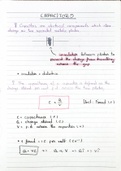 CAPACITORS
Capacitors are electrical components which store
charge on two separated metallic plates
insulator between plates to
prevent the charge from travelling
across the gap
insulator = dielectric
The capacitance of a capacitor is defined as the
charge stored per unit
C = Q/V
Unit: Farad (F)
C = capacitance (F)
Q = charge stored (C)
V = p.d. across the capacitor (V)
1 farad = 1 C per volt (CV⁻¹)
Q = VC